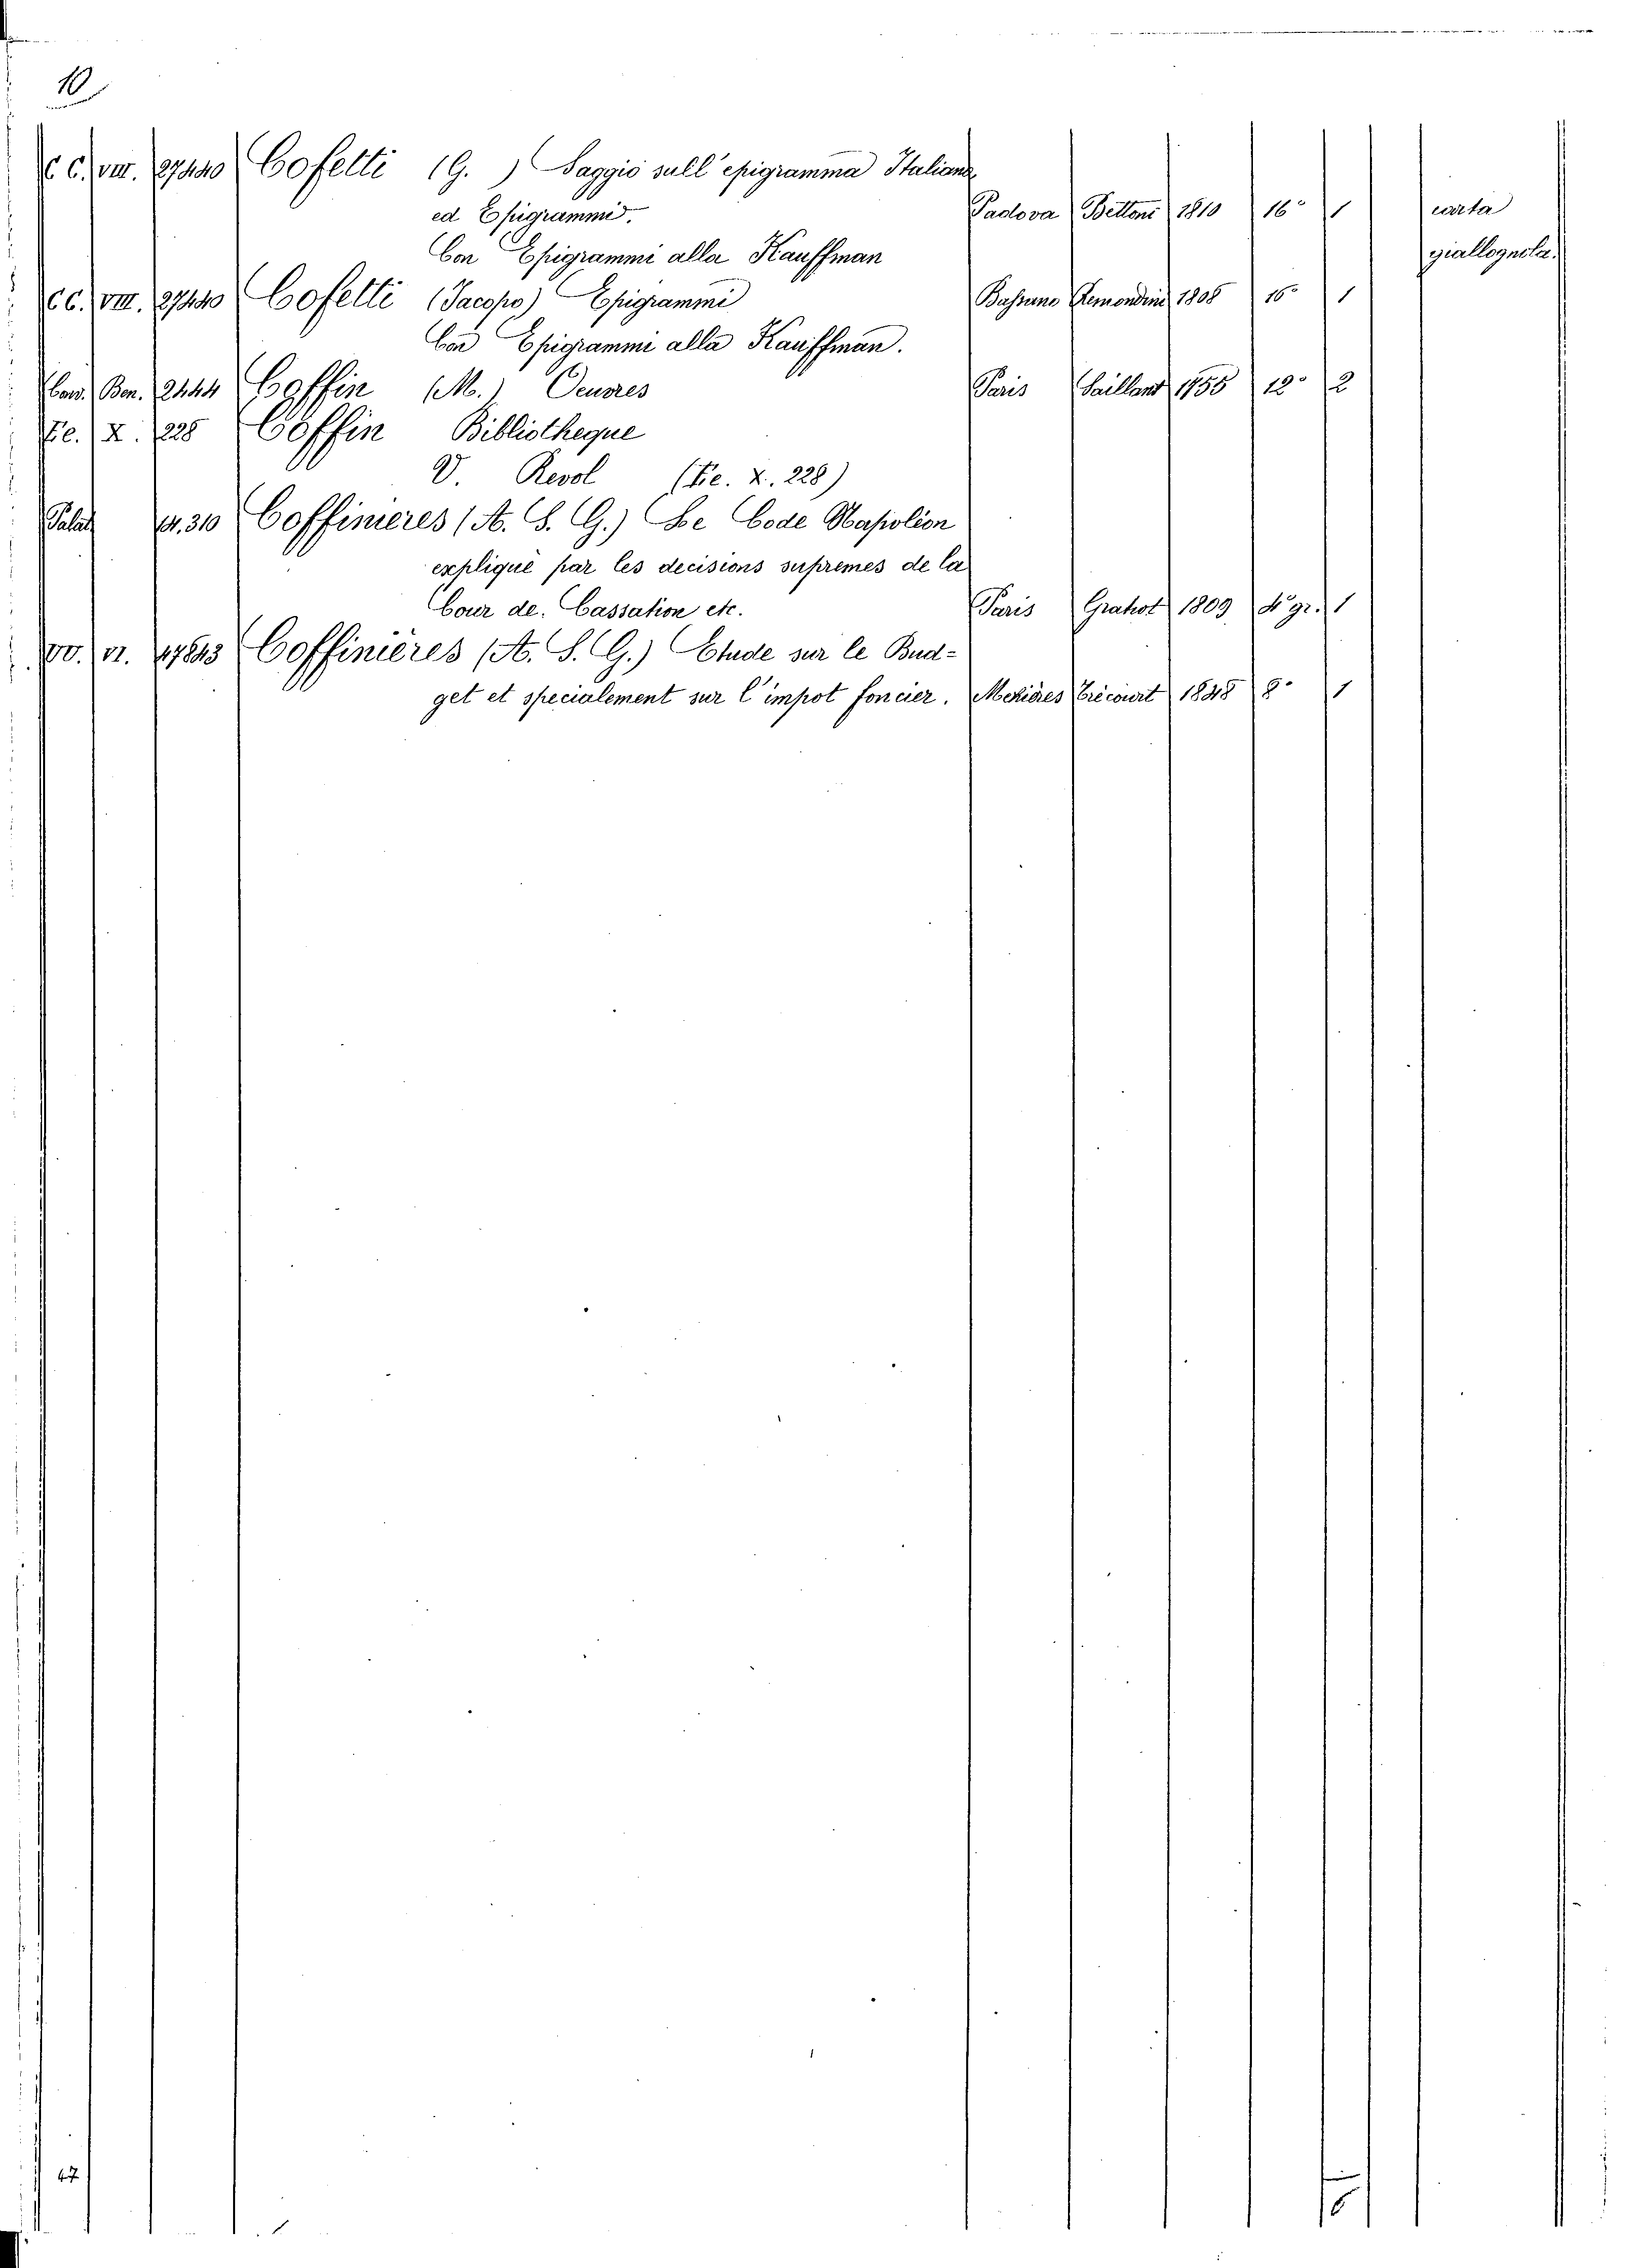 10
C. C. VIII. 27440 Cofetti (G. ) Saggio sull'epigramma Italiano
ed Epigrammi. Padova Bettoni 1810 16° 1 carta
Con Epigrammi alla Kauffman giallognola.
C. C. VIII. 27440 Cofetti (Jacopo) Epigrammi Bassano Remondini 1808 16° 1
Con Epigrammi alla Kauffman.
Ben. 2444 Coffin (M.) Oeuvres Paris Saillant 1755 12° 2
Fe. X. 228 Coffin Bibliotheque
V. Revol (Fe. X. 228)
Palat 310 Coffinieres (A. S. G.) Le Code Napolion
explique par les decisions supremes de la
Cour de. Cassation etc. Paris 1809 4° gr. 1
VI. Coffinières (A. S. G.) Etude sur le Bud-
get et specialement sur l'impot foncier. Mezières Trécourt 1848 8° 1
47
6